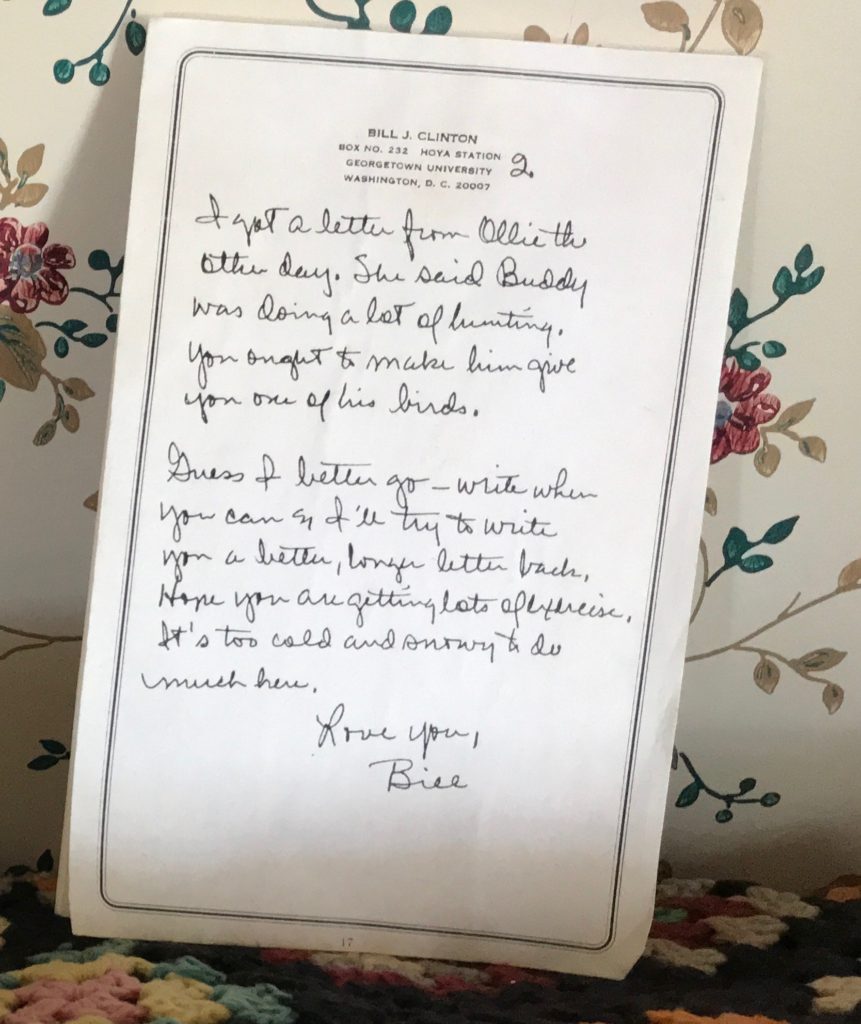 BILL J. CLINTON
BOX NO. 232 HOYA STATION
GEORGETOWN UNIVERSITY
WASHINGTON, D. C. 20007
2.
I got a letter from Ollie the
other day. She said Buddy
was doing a lot of hunting.
You ought to make him give
you one of his birds.
Guess I better go – write when
you can & I'll try to write
you a better, longer letter back.
Hope you are getting lots of exercise.
It's too cold and snowy to do
much here.
Love you,
Bill
17